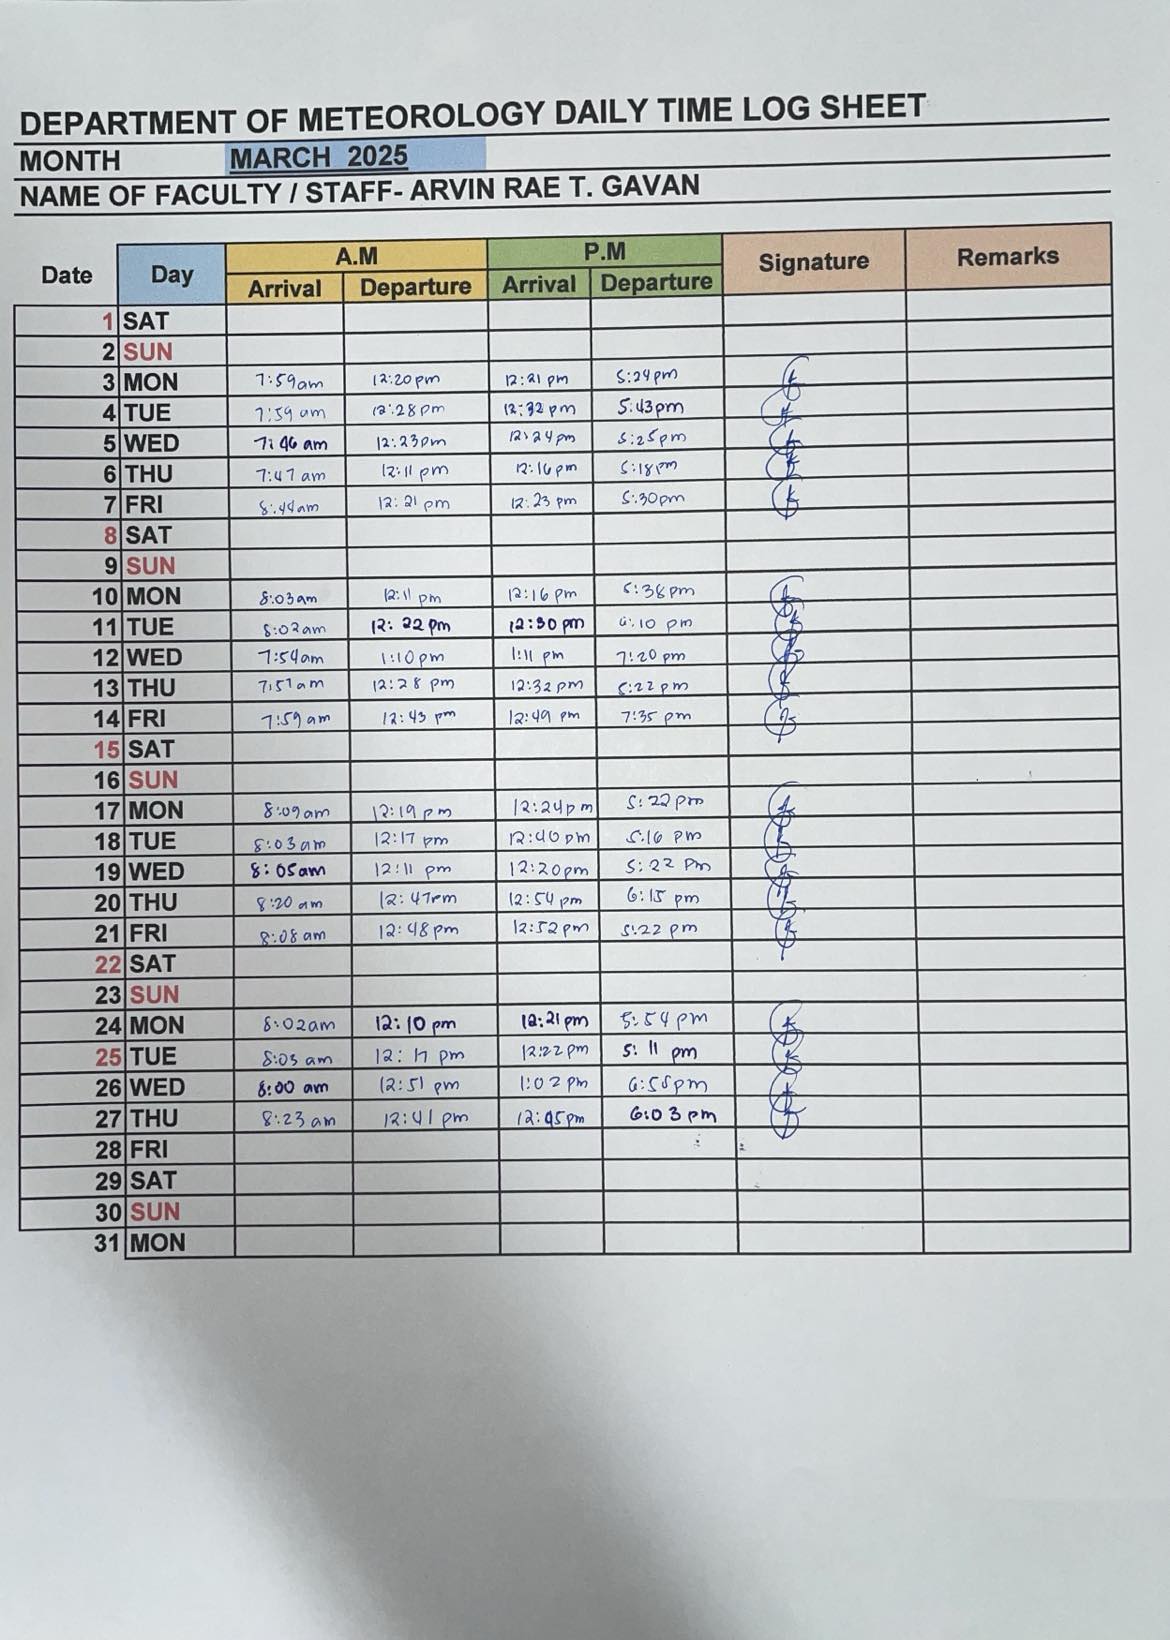 DEPARTMENT OF METEOROLOGY DAILY TIME LOG SHEET
MONTH MARCH 2025
NAME OF FACULTY / STAFF- ARVIN RAE T. GAVAN
Date Day A.M P.M Signature Remarks
Arrival Departure Arrival Departure
1 SAT
2 SUN
3 MON 7:59am 12:20pm 12:21 pm 5:24pm
4 TUE 7:59 am 12:28pm 12:32 pm 5:43pm
5 WED 7:46 am 12:23pm 12:24pm 5:25pm
6 THU 7:47 am 12:11 pm 12:16pm 5:18pm
7 FRI 8:44am 12:21 pm 12:23 pm 5:30pm
8 SAT
9 SUN
10 MON 8:03am 12:11 pm 12:16 pm 5:38pm
11 TUE 8:02am 12:22pm 12:30 pm 6:10 pm
12 WED 7:54am 1:10pm 1:11 pm 7:20 pm
13 THU 12:28 pm 12:32pm 5:22 pm
14 FRI 7:59 am 12:43 pm 12:49 pm 7:35 pm
15 SAT
16 SUN
17 MON 8:09am 12:19 pm 12:24pm 5:22 pm
18 TUE 8:03 am 12:17 pm 12:40pm 5:16 pm
19 WED 8:05am 12:11 pm 12:20pm 5:22 pm
20 THU 8:20 am 12:47pm 12:54 pm 6:15 pm
21 FRI 8:08 am 12:48pm 12:52pm 5:22 pm
22 SAT
23 SUN
24 MON 8:02am 12:10 pm 12:21 pm 5:54 pm
25 TUE 12:17 pm 12:22pm 5:11 pm
26 WED 8:00 am 12:51 pm 1:02 pm
27 THU 8:23 am 12:41 pm 12:45pm 6:03 pm
28 FRI
29 SAT
30 SUN
31 MON